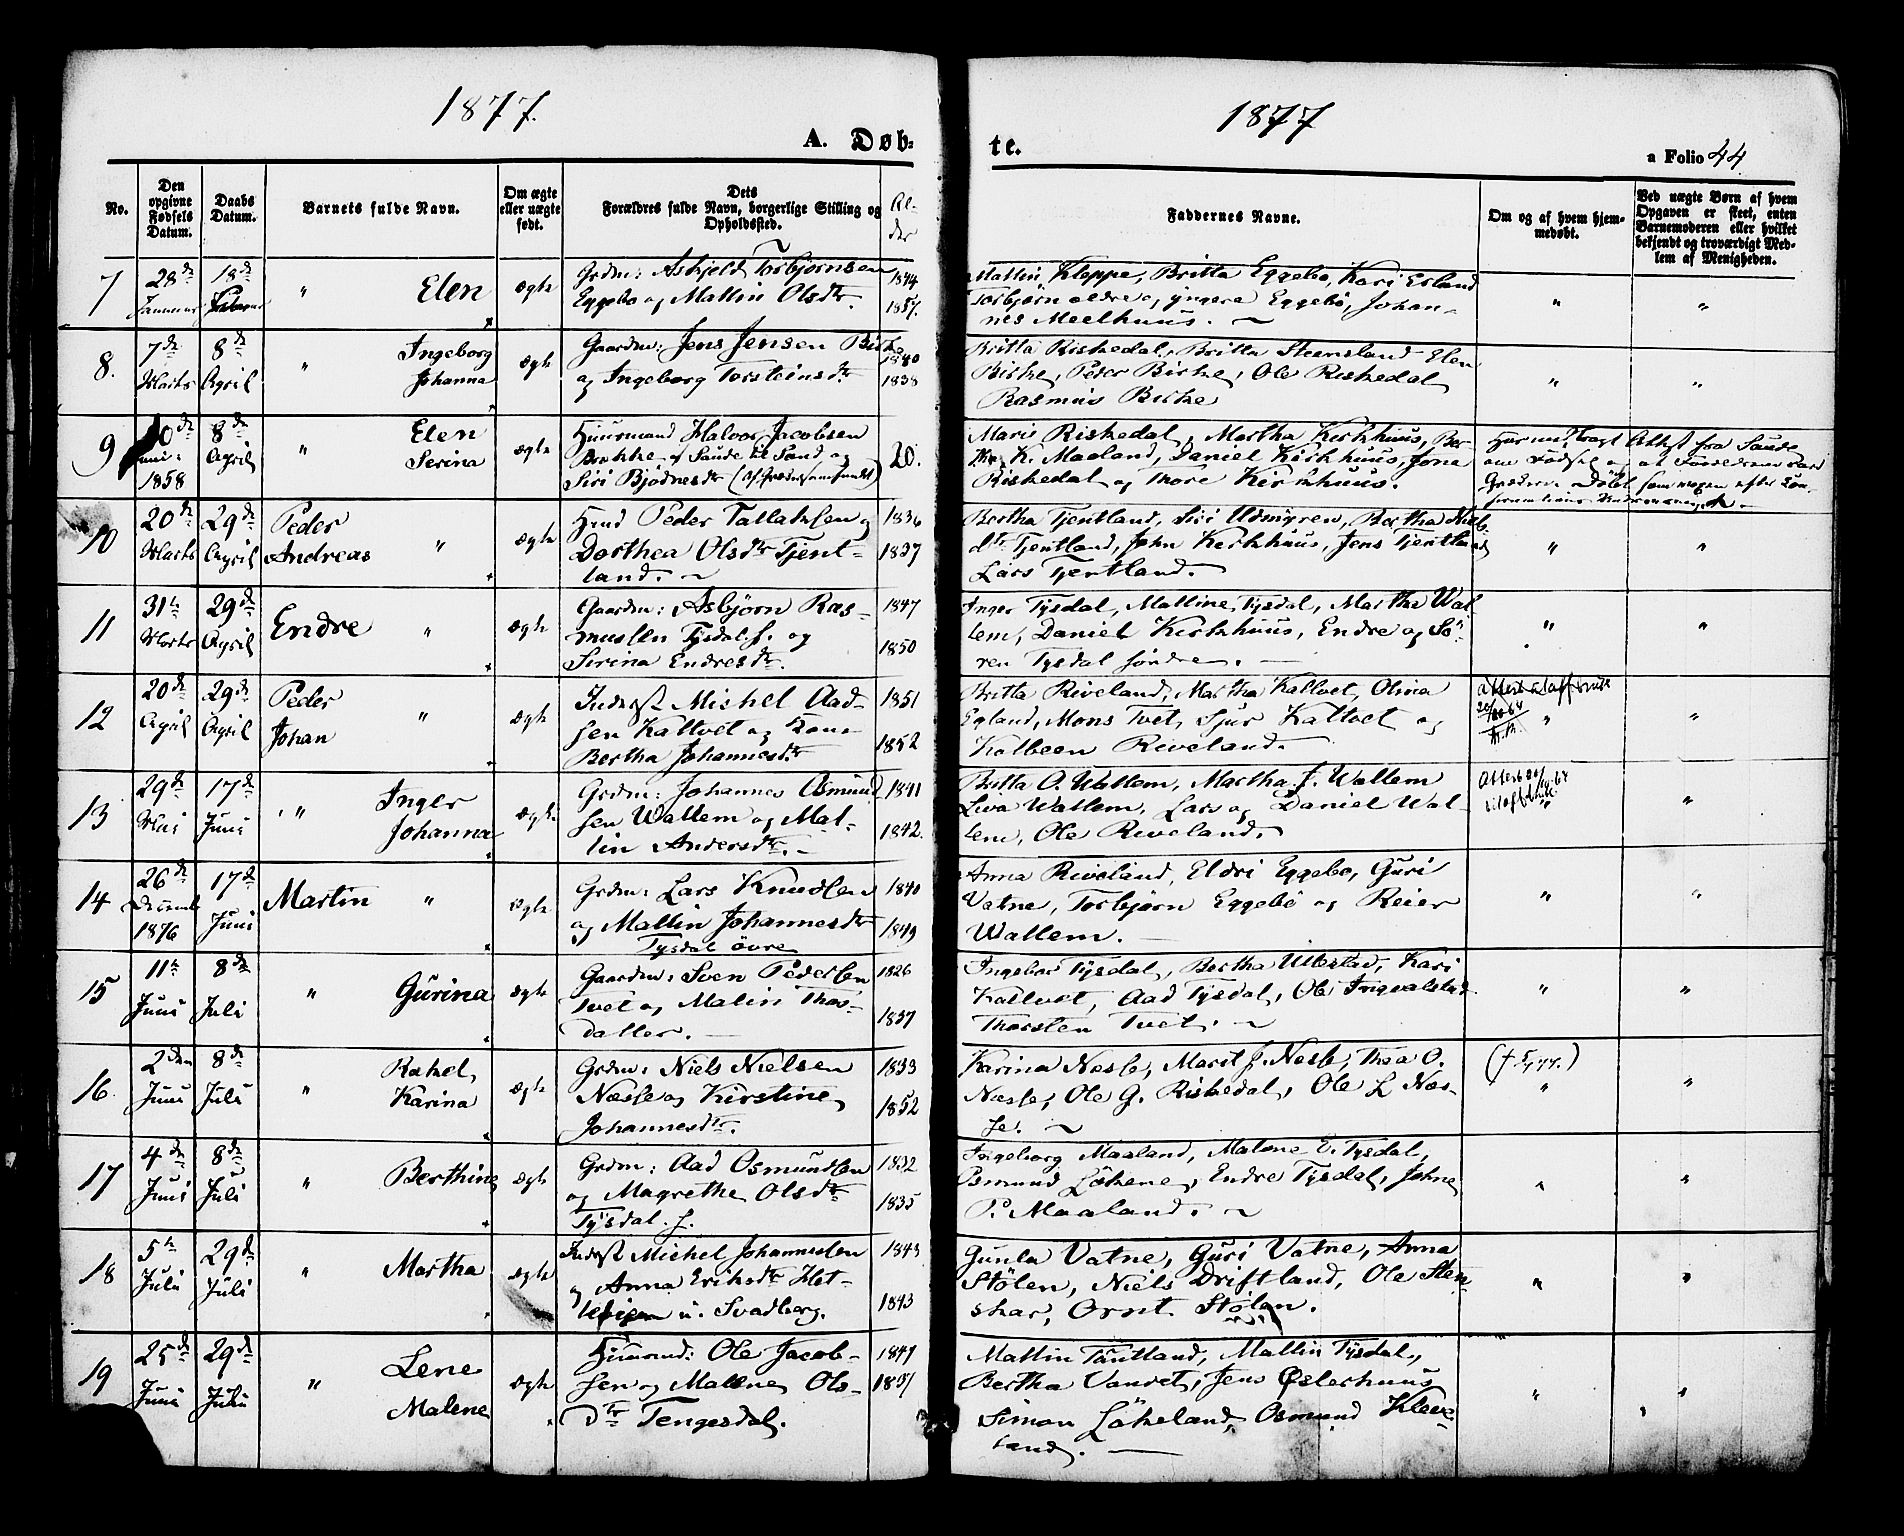 1877.
1877
A. Døb-
te.
a Folio 44
No.
Den opgivne Fødsels Datum.
Daabs Datum.
Barnets fulde Navn.
Om ægte eller uægte født.
Dets Forældres fulde Navn, borgerlige Stilling og Opholdssted.
Al-
der
Faddernes Navne.
Om og af hvem hjemmedøbt.
Ved uægte Børn af hvem Opgaven er skeet, enten Barnemoderen eller hvilket bekjendt og troværdigt Medlem af Menigheden.
7
28de
Januar
18de
Februar
"
Elen
ægte
Grdm: Askjeld Torbjørnsen
Eggebø og Mallin Olsdtr.
1844
1857.
Mallin Kleppe, Britta Eggebø, Kari Esland
Torbjørn ældre og yngere Eggebø, Johan-
nes Meelhuus.
"
"
8.
7de
Marts
8de
April
"
Ingeborg
Johanna
ægte
Gaardm: Jens Jensen Birke
og Ingeborg Torsteinsdtr.
1838
Britta Riskedal, Britta Steensland Elen
Birke, Peder Birke, Ole Riskedal
Rasmus Birke
"
"
9
1858
8de
April
"
Elen
Serina
ægte
Huusmand Halvor Jacobsen
Brekke af Saude til Sand og
Siri Bjødnesdtr
20.
Maris Riskedal, Martha Kirkhuus, Ber-
tha K. Maaland, Daniel Kirkhuus, Jone
Riskedal og Thore Kirkhuus.
Attest fra Saude
om Fødsel og at Forældrene
10
20de
Marts
29de
April
Peder
Andreas
"
ægte
Hmd Peder Tallaksen og
Dorthea Olsdtr Tjent-
land.
1836
1837
Bertha Tjentland, Siri Udmyren, Bertha Niels-
dtr Tjentland, John Kirkhuus, Jens Tjentland
Lars Tjentland.
"
"
11
31te
Marts
29de
April
Endre
"
ægte
Gaardm: Asbjørn Ras-
mussen Tysdal s. og
Serina Endresdtr.
1847
1850
Inger Tysdal, Malline Tysdal, Martha Wal-
lem, Daniel Kirkhuus, Endre og Sö-
ren Tysdal søndre.
"
"
12
20de
April
29de
April
Peder
Johan
"
ægte
Inderst Michel Aad-
sen Kallvet og Kone
Bertha Johannesdtr.
1851
1852
Britta Riveland, Martha Kallvet, Olina
Egland, Mons Tvet, Sjur Kallvet og
Kolbeen Riveland.
"
"
13
29de
Mai
17de
Juni
"
Inger
Johanna
ægte
Grdm: Johannes Osmund-
sen Wallem og Mal-
lin Andersdtr.
1841
1842.
Britta O. Wallem, Martha J. Wallem
Liva Wallem, Lars og Daniel Wal-
lem, Ole Riveland.
"
"
14
26de
Decemb
1876
17de
Juni
Martin
"
ægte
Grdm: Lars Knudsen
og Mallin Johannesdtr
Tysdal øvre
1840
1849
Anna Riveland, Eldri Eggebø, Guri
Vatne, Torbjørn Eggebö og Reier
Wallem.
"
"
15
11te
Juni
8de
Juli
"
Gurina
ægte
Gaardm: Sven Pedersen
Tvet og Malin Thos-
datter.
1826
1837
Ingebor Tysdal, Bertha Ullestad, Kari
Kallvet, Aad Tysdal, Ole Ingvalstad
Thorsten Tvet.
"
"
16.
2den
Juni
8de
Juli
"
Rakel
Karina
ægte
Grdm: Niels Nielsen
Næsse og Kirstine
Johannesdtr.
1833
1852
Karina Næsse, Marit J. Næsse, Thea O.
Næsse, Ole G. Riskedal, Ole L Næs-
se.
"
"
17
4de
Juni
8de
Juli
"
Berthine
ægte
Grdm: Aad Osmundsen
og Magrethe Olsdtr
Tysdal. s.
1832
1835
Ingeborg Maaland, Malene E. Tysdal,
Osmund Lökene, Endre Tysdal, Johne
P. Maaland.
"
"
18
5te
Juli
29de
Juli
"
Martha
ægte
Inderst Michel Johannesen
og Anna Eriksdtr
u. Svadberg.
1843
1843
Gunla Vatne, Guri Vatne, Anna
Stölen, Niels Driftland, Ole Sten-
skar, Ornt Stölen.
"
"
19
25de
Juni
29de
Juli
"
Lene
Malene
ægte
Huusmd: Ole Jacob-
sen og Mallene Ols-
dtr Tengesdal.
1847
Mallin Tøutland, Mallin Tysdal,
Bertha Vandvet, Jens Østerhuus
Simon Lökeland, Osmund Kleve-
land.
"
"